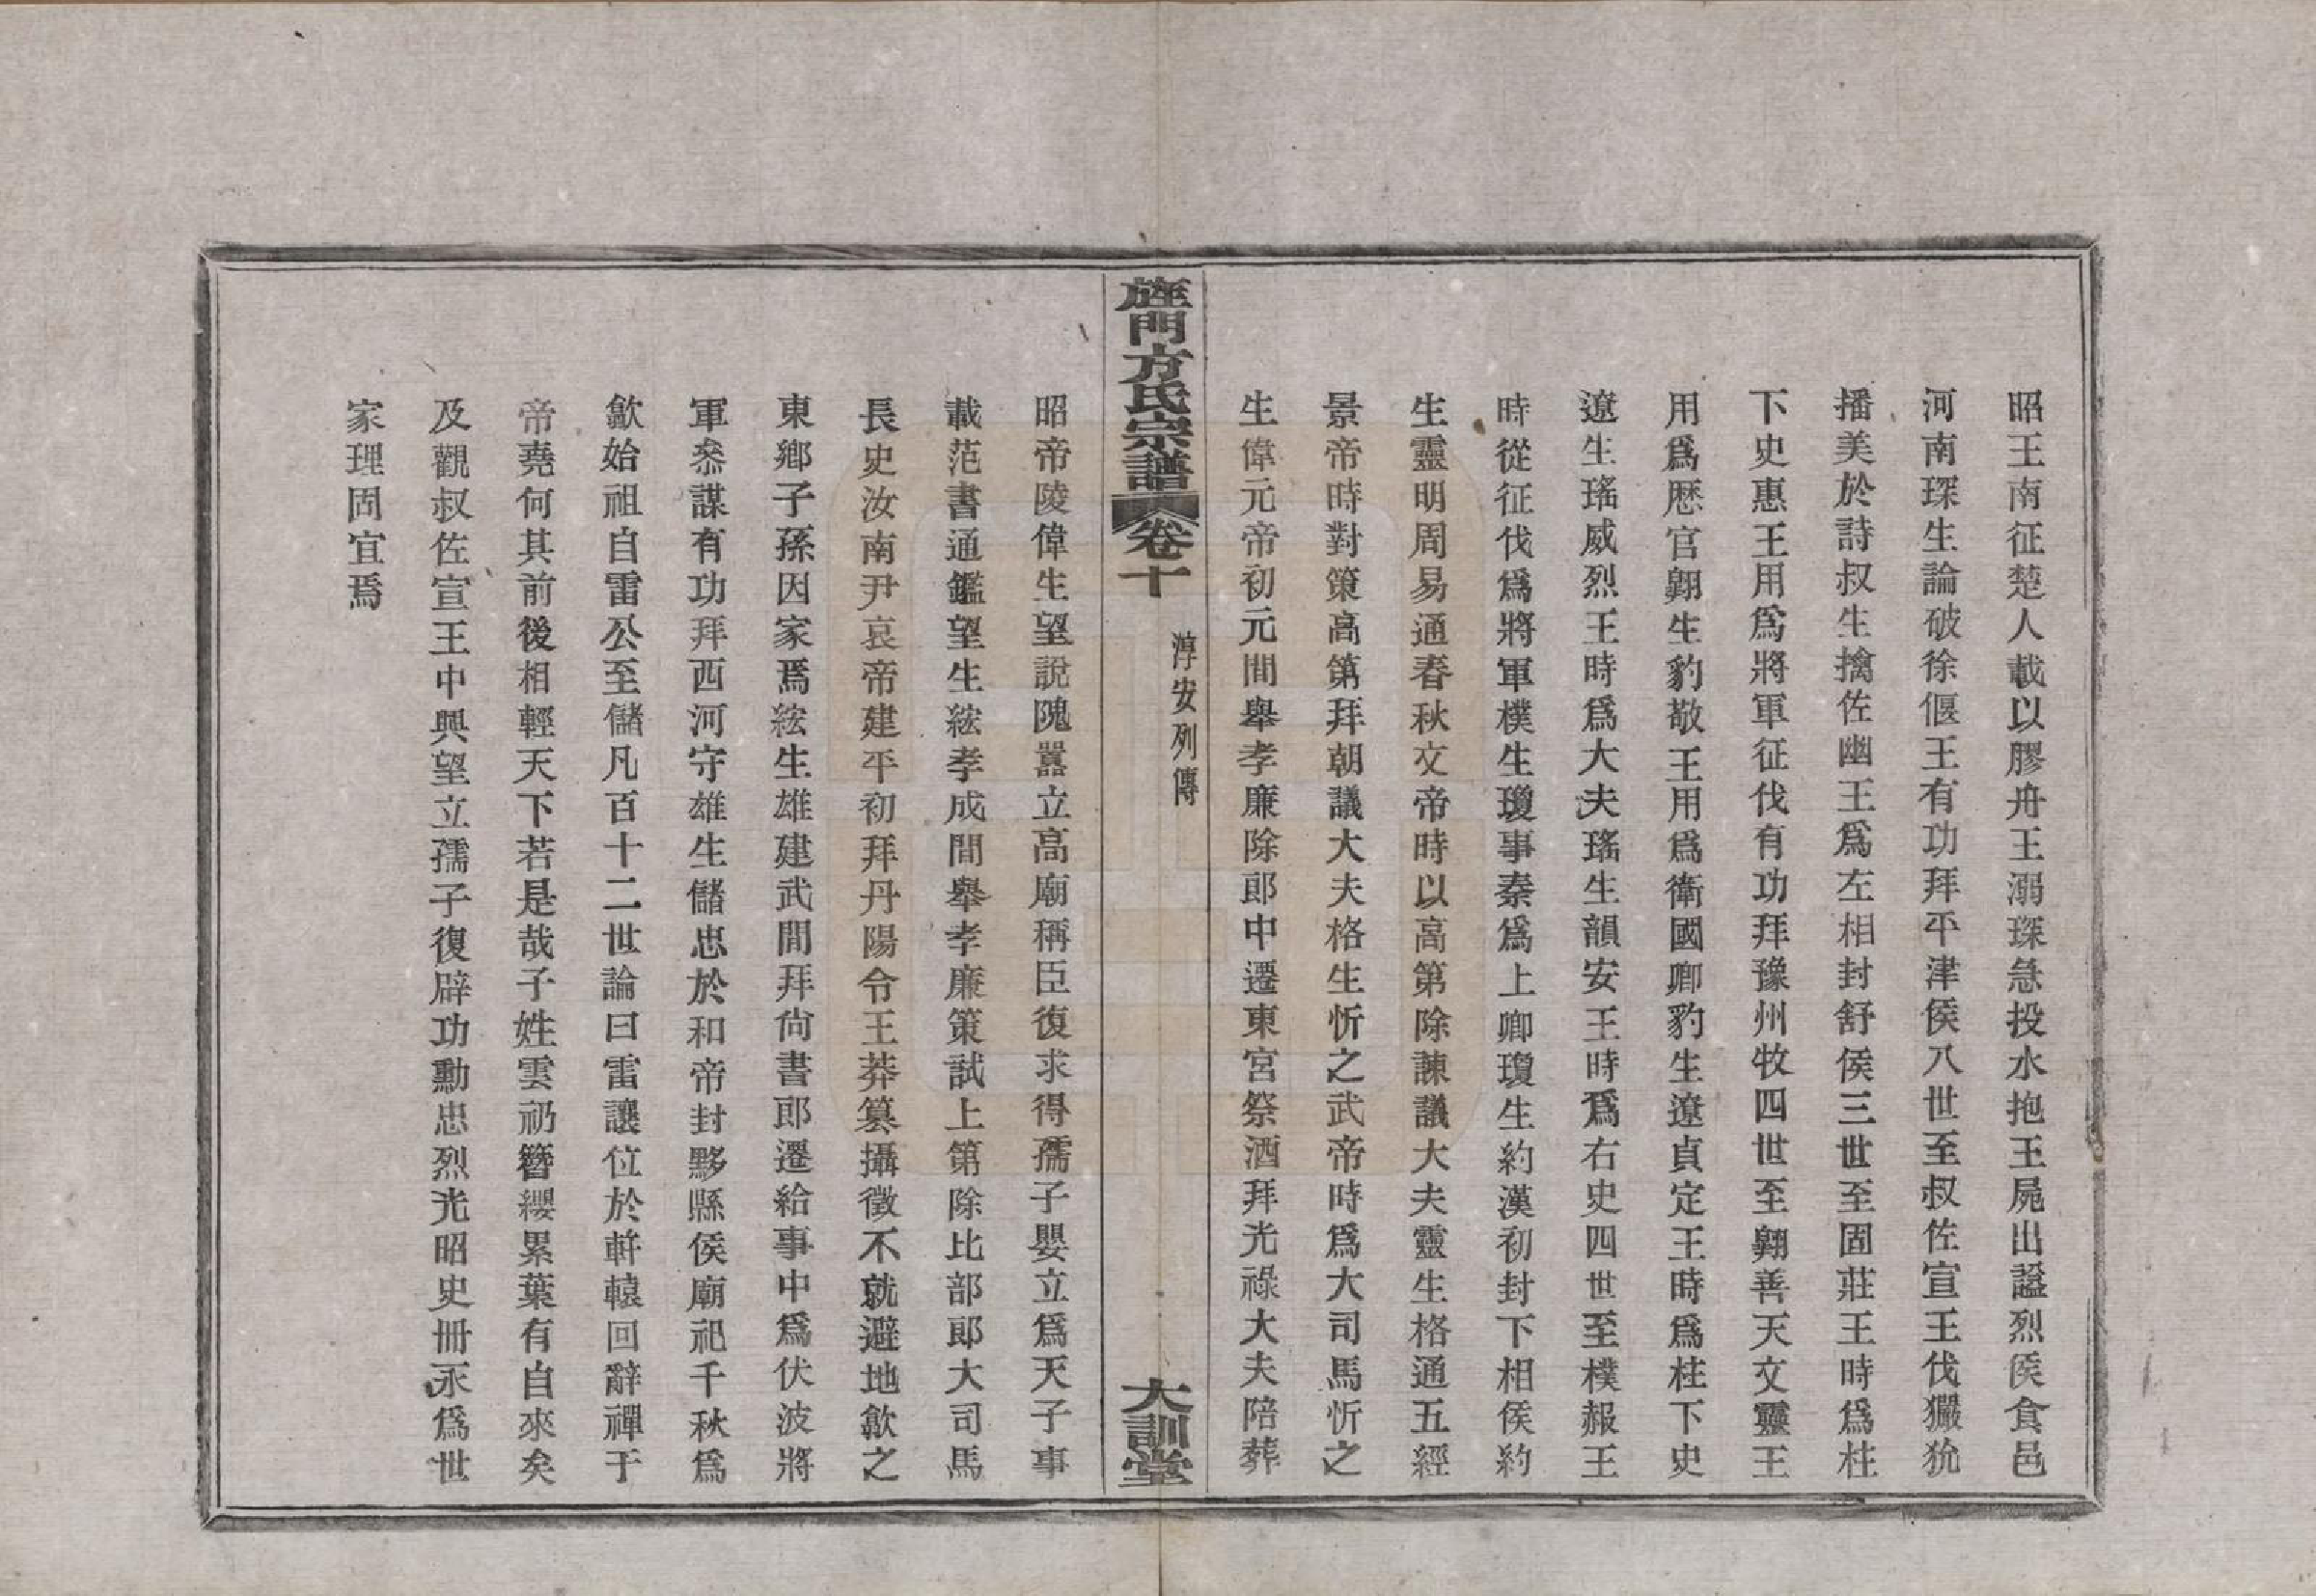 昭王南征楚人載以膠舟王溺琛急投水抱王屍出謚烈侯食邑
河南琛生論破徐偃王有功拜平津侯八世至叔佐宣王伐玁狁
播美於詩叔生擒佐幽王爲左相封舒侯三世至固莊王時爲柱
下史惠王用爲將軍征伐有功拜豫州牧四世至翱善天文靈王
用爲歷官翱生豹敬王用爲衛國卿豹生遼貞定王時爲柱下史
遼生瑤威烈王時爲大夫瑤生韻安王時爲右史四世至樸赧王
時從征伐爲將軍樸生瓊事秦爲上卿瓊生約漢初封下相侯約
生靈明周易通春秋文帝時以高第除諫議大夫靈生格通五經
景帝時對策高第拜朝議大夫格生忻之武帝時爲大司馬忻之
生偉元帝初元間舉孝廉除郎中遷東宮祭酒拜光祿大夫陪葬
旌門方氏宗譜 卷十 淳安列傳 大訓堂
昭帝陵偉生望說隗囂立高廟稱臣復求得孺子嬰立爲天子事
載范書通鑑望生綋孝成間舉孝廉策試上第除比部郎大司馬
長史汝南尹哀帝建平初拜丹陽令王莽篡攝徵不就避地歙之
東鄉子孫因家焉綋生雄建武間拜尙書郎遷給事中爲伏波將
軍叅謀有功拜西河守雄生儲忠於和帝封黟縣侯廟祀千秋爲
歙始祖自雷公至儲凡百十二世論曰雷讓位於軒轅回辭禪于
帝堯何其前後相輕天下若是哉子姓雲礽簪纓累葉有自來矣
及觀叔佐宣王中興望立孺子復辟功勳忠烈光昭史册永爲世
家理固宜焉